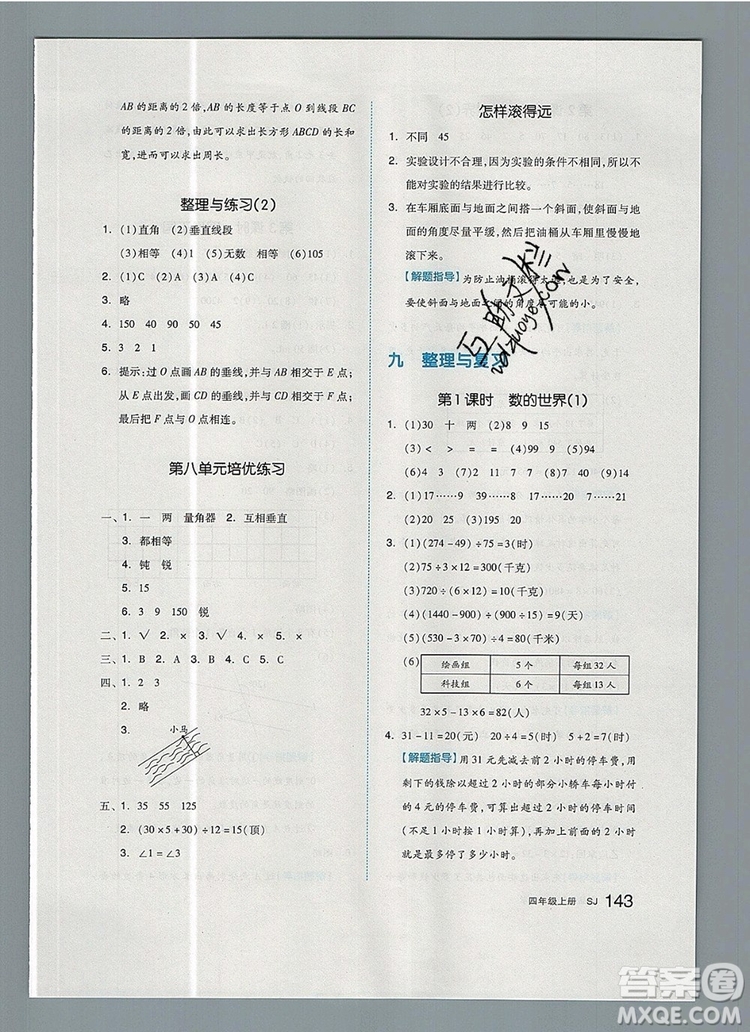 AB 的距离的 2 倍，AB 的长度等于点 O 到线段 BC
的距离的 2 倍，由此可以求出长方形 ABCD 的长和
宽，进而可以求出周长。
整理与练习(2)
1. (1)直角 (2)垂直线段
(3)相等 (4)1 (5)无数 相等 (6)105
2. (1)C (2)A (3)A (4)C
3. 略
4. 150 40 90 50 45
5. 3 2 1
6. 提示：过 O 点画 AB 的垂线，并与 AB 相交于 E 点；
从 E 点出发，画 CD 的垂线，并与 CD 相交于 F 点；
最后把 F 点与 O 点相连。
第八单元培优练习
一、1. 一 两 量角器 2. 互相垂直
3. 都相等
4. 钝 锐
5. 15
6. 3 9 150 锐
二、1. √ 2. × 3. √ 4. × 5. ×
三、1. B 2. A 3. C 4. B 5. C
四、1. 1 2 3
2. 略
3.
小马
五、1. 35 55 125
2. (30×5+30)÷12=15(顶)
3. ∠1=∠3
怎样滚得远
1. 不同 45
2. 实验设计不合理，因为实验的条件不相同，所以不
能对实验的结果进行比较。
3. 在车厢底面与地面之间搭一个斜面，使斜面与地
面的角度尽量平缓，然后把油桶从车厢里慢慢地
滚下来。
【解题指导】为防止油桶滚得太远，也是为了安全，
要使斜面与地面之间的角度尽可能的小。
九 整理与复习
第 1 课时 数的世界(1)
1. (1)30 十 两 (2)8 9 15
(3)< = > (4)> < < =
(5)4 3 7 11 2 40 (6)6 7 7 8
2. (1)17……9 39……38 7……60 6……21
(2)20 25 (3)195 20
3. (1)(274-49)÷75=3(时)
(2)75÷3×12=300(千克)
(3)720÷(6×12)=10(千克)
(4)(1440-900)÷(900÷15)=9(天)
(5)(530-3×70)÷4=80(千米)
(6)
绘画组 5 个 每组 32 人
科技组 6 个 每组 13 人
32×5-13×6=82(人)
4. 31-11=20(元) 20÷4=5(时) 5+2=7(时)
【解题指导】用 31 元先减去前 2 小时的停车费，用
剩下的钱除以超过 2 小时的部分小轿车每小时付
的 4 元的停车费，求出超过 2 小时的停车时间
(不足 1 小时按 1 小时算)，再加上前面的 2 小时
就是一共停了多少小时。
四年级上册 SJ 143
答案圈
MXQE.COM